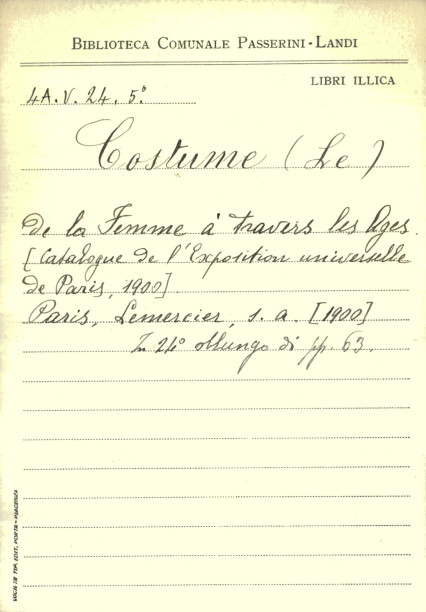 BIBLIOTECA COMUNALE PASSERINI-LANDI
LIBRI ILLICA
4A. V. 24. 5°
Costume (Le)
de la Femme à travers les Ages.
[Catalogue de l'Exposition universelle
de Paris, 1900]
Paris, Lemercier, s. a. [1900]
24° oblungo di pp. 63.